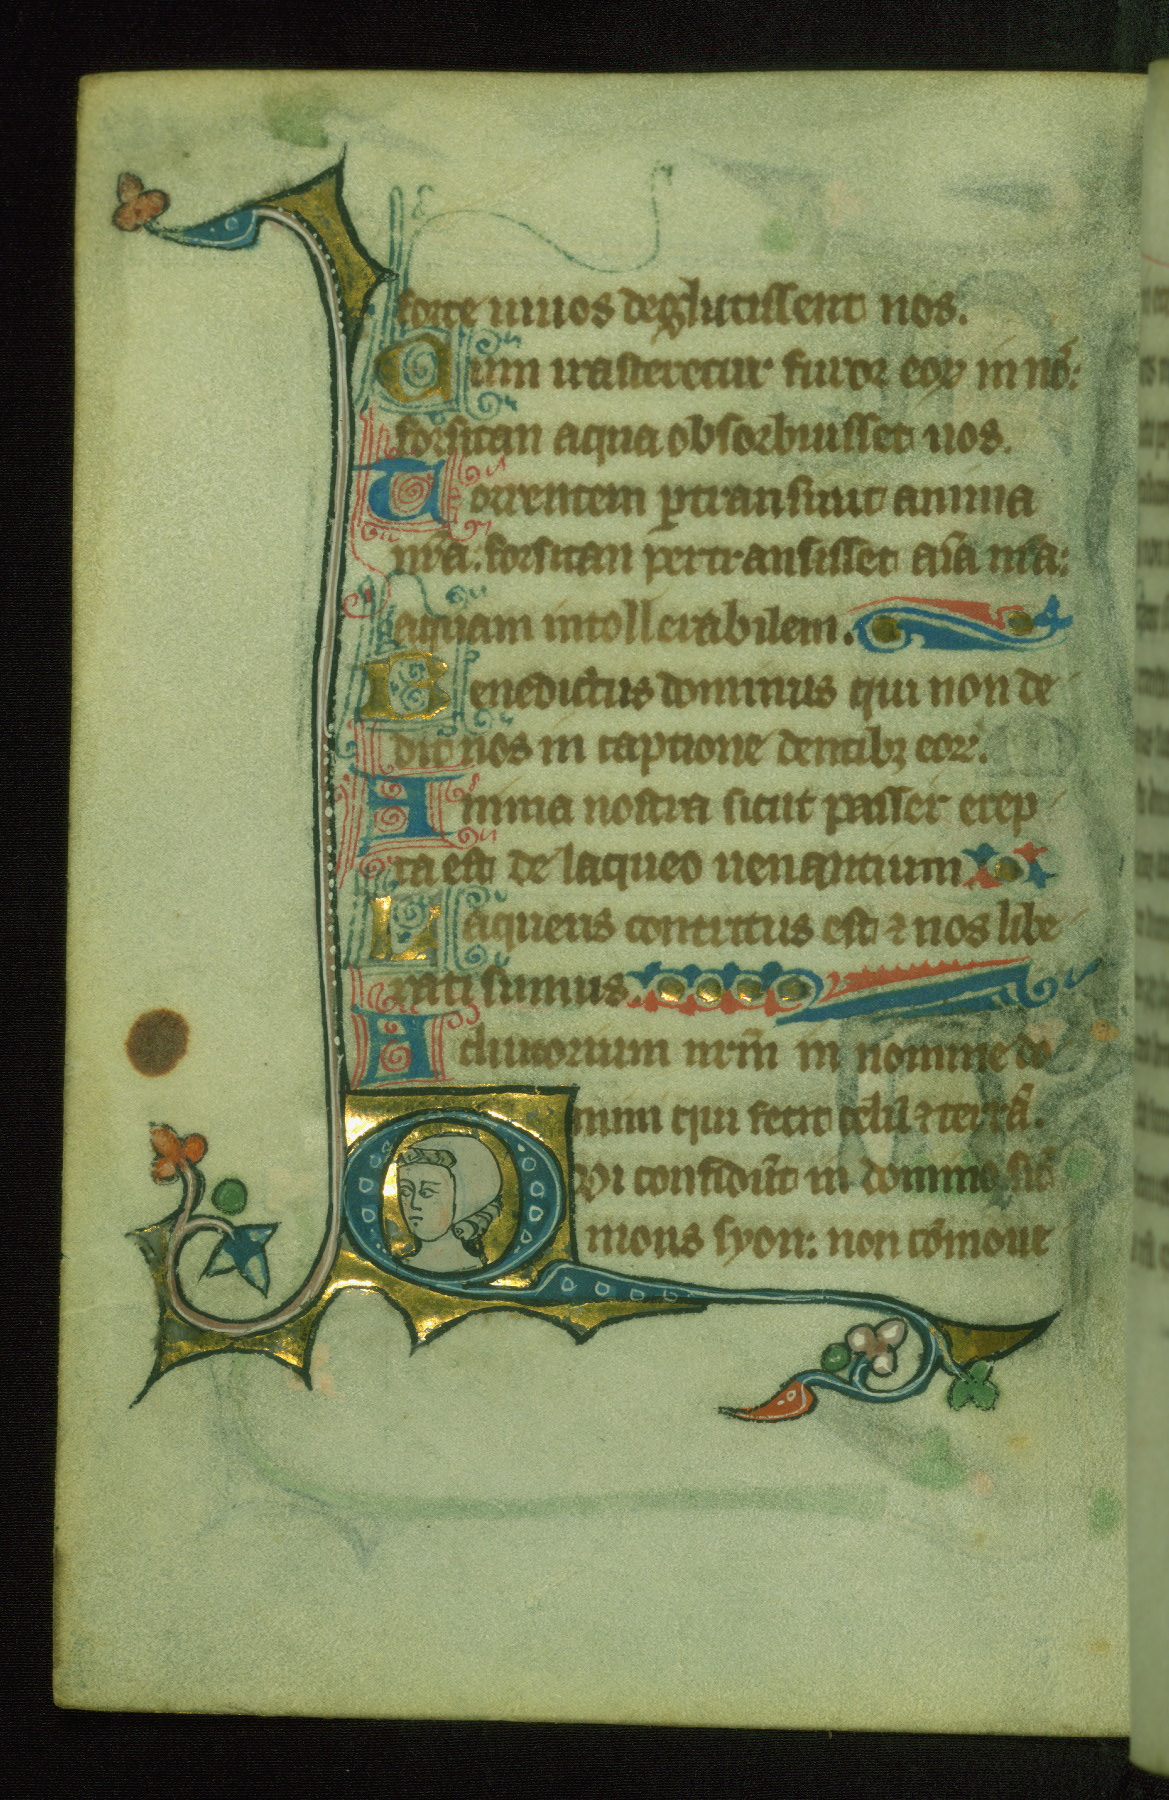 forte uiuos deglutissent nos.
Cum irasceretur furor eoꝝ in nōs:
forsitan aqua obsorbuisset nos.
Torrentem ꝑtransiuit anima
nr̄a: forsitan pertransisset aīa nr̄a:
aquam intollerabilem.
Benedictus dominus qui non de
dit nos in captione dentibꝫ eoꝝ.
Anima nostra sicut passer erep
ta est de laqueo uenantium
Laqueus contritus est ⁊ nos libe
rati sumus.
Adiutorium nr̄m in nomine do
mini qui fecit celū ⁊ terrā.
Qui confidūt in domino sic̄
mons syon: non cōmoue